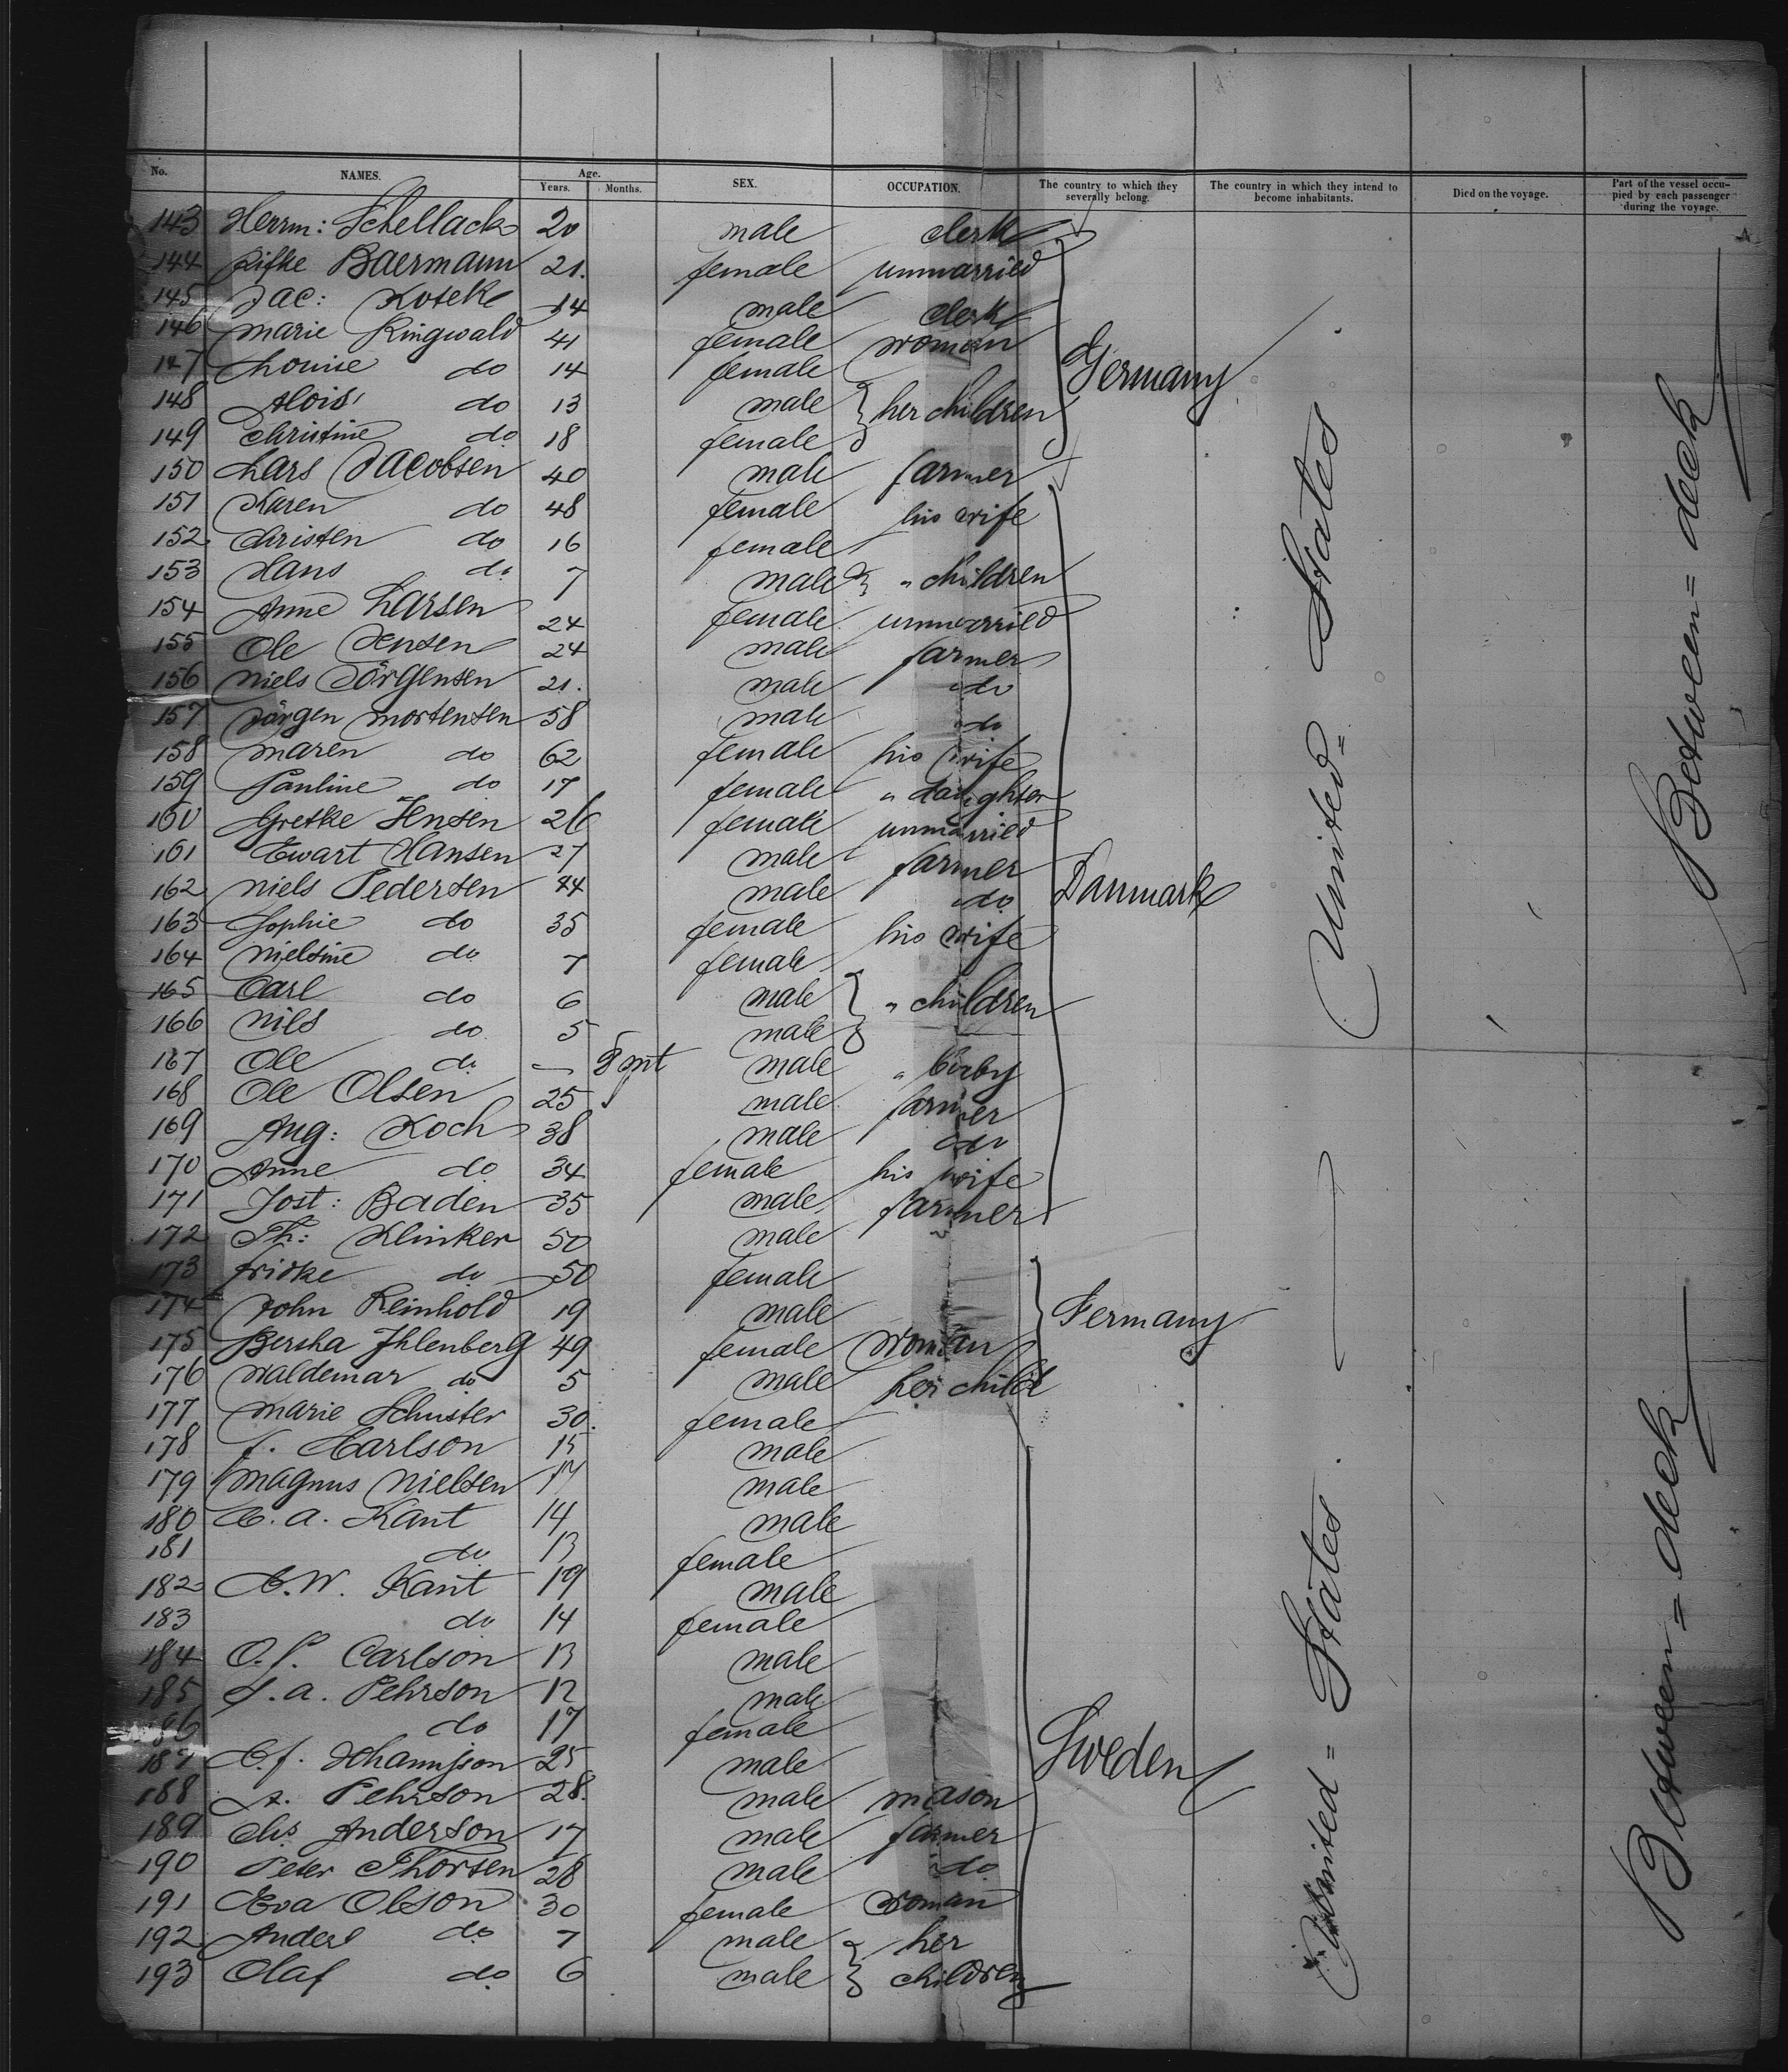 No. NAMES. Age. Years. Months. SEX. OCCUPATION. The country to which they severally belong. The country in which they intend to become inhabitants. Died on the voyage. Part of the vessel occupied by each passenger during the voyage.
143 Herrm: Schellack 20 male clerk
144 Rifke Baermann 21. female unmarried
145 Jac: Koteke 14 male clerk
146 Marie Ringwald 41 female woman
147 Louise do 14 female
148 Alois do 13 male } her children Germany
149 Christine do 18 female
150 Lars Jacobsen 40 male farmer
151 Karen do 48 female his wife
152 Christen do 16 female
153 Hans do 7 male } " children
154 Anne Larsen 24 female unmarried
155 Ole Jensen 24 male farmer
156 Niels Jörgensen 21. male do
157 Jörgen Mortensen 58 male do
158 Maren do 62 female his wife
159 Pauline do 17 female " daughter
160 Gretke Jensen 26 female unmarried
161 Ewart Hansen 27 male farmer
162 Niels Pedersen 44 male do Danmark
163 Sophie do 35 female his wife
164 Nielsine do 7 female
165 Carl do 6 male } " children
166 Nils do 5 male
167 Ole do — 8 mt male " baby
168 Ole Olsen 25 male farmer
169 Aug: Koch 38 male do
170 Anne do 34 female his wife
171 Jost: Baden 35 male farmer
172 Th: Klinker 50 male
173 Fridke do 50 female
174 John Reinhold 19 male Germany
175 Bertha Ihlenberg 49 female woman
176 Waldemar do 5 male her child
177 Marie Schuster 30. female
178 f. Carlson 15 male
179 Magnus Nielsen 17 male
180 C. A. Kant 14 male
181 do 13 female
182 C. W. Kant 19 male
183 do 14 female
184 O. P. Carlson 13 male
185 J. A. Pehrson 12 male
186 do 17 female
187 C. f. Johannsson 25 male Sweden
188 A. Pehrson 28. male mason
189 Chs Anderson 17 male farmer
190 Peter Thorsen 28 male do
191 Eva Olson 30 female woman
192 Anders do 7 male } her
193 Olaf do 6 male } children
United = States
United = States.
Between = deck
Between = deck